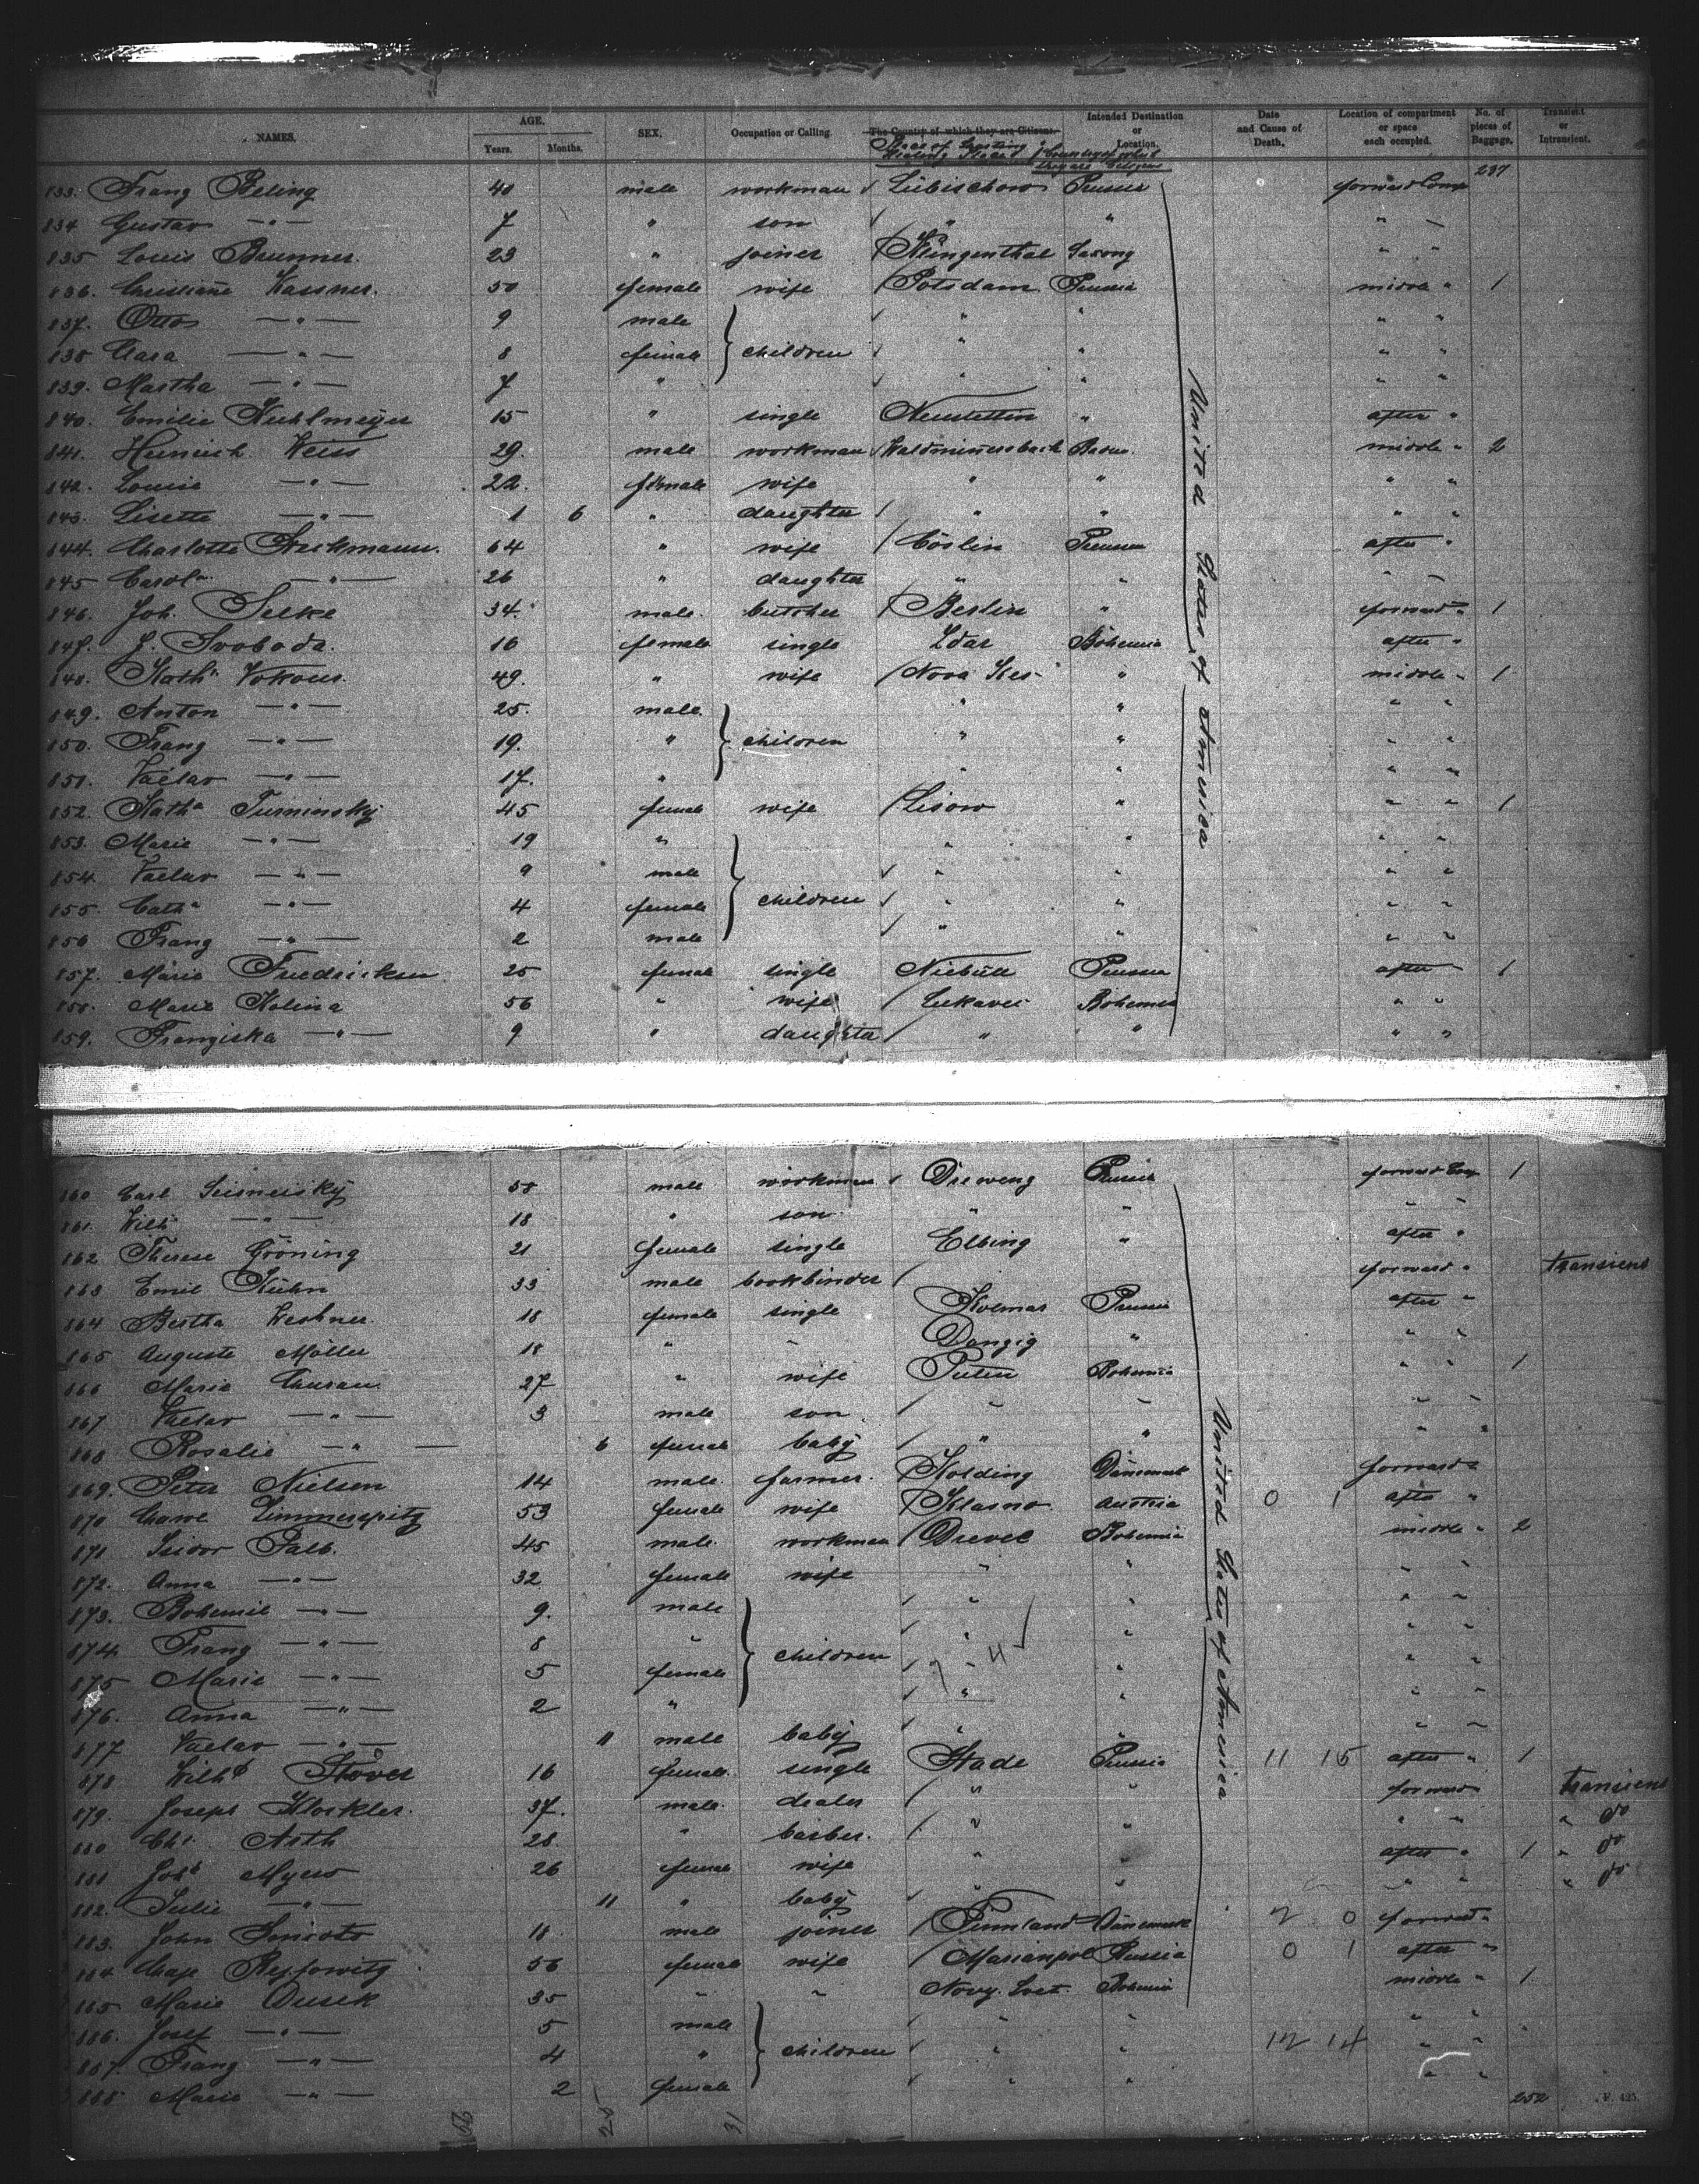 NAMES. AGE. Years. Months. SEX. Occupation or Calling. The Country of which they are Citizens. Intended Destination or Location. Date and Cause of Death. Location of compartment or space each occupied. No. of pieces of Baggage. Transient or Intransient.
237
833. Franz Beling 40 male workman Lubischow Prussia forward Comp
834 Gustav — " — 7 " son " " " "
835 Louis Brunner. 23 " joiner Klingenthal Saxony " "
836. Christiane Kassner. 50 female wife Potsdam Prussia middle " 1
837. Otto — " — 9 male " " " "
838 Clara — " — 8 female children " " " "
839. Martha — " — 7 " " " " "
840. Emilie Kuhlmeyer 15 " single Neustettin " after "
841. Heinrich Weiss 29. male workman Waldwimmersbach Baden. middle " 2
842. Louise — " — 22. female wife " " " "
843. Lisette — " — 1 6 " daughter " " " "
844. Charlotte 64 " wife Cöslin Prussia after "
845 Carol — " — 26 " daughter " " " "
846. Joh. Selke 34. male. butcher Berlin " forward " 1
847. J. Svoboda. 16 female single Zdar Bohemia after "
848. Kath. Vokoun. 49. " wife Nova " middle " 1
849. Anton — " — 25. male. " " " "
850. Franz — " — 19. " children " " " "
851. Vaclav — " — 17. " " " " "
852. Kath. Turninsky 45 female wife Lisow " " " 1
853. Marie — " — 19 " " " " "
854. Vaclav — " — 9 male " " " "
855. Cath — " — 4 female children " " " "
856 Franz — " — 2 male " " " "
857. Marie Friedricksen 25 female single Niebüll Prussia after 1
858. Marie Kolina 56 " wife Lukavec Bohemia " "
859. Franziska — " — 9 " daughter " " " "
United States of America
860 Carl 58 male workman Dreweng Prussia forward Comp 1
861. Wilh — " — 18 " son " " " "
862 Therese Gröning 21 female single Elbing " after "
863 Emil Kuhn 33 male bookbinder forward " transient
864 Bertha 18 female single Kolmar Prussia after "
865 Auguste Möller 18 " " Danzig " " "
866 Marie 27 " wife Bohemia " " 1
867 Vaclav — " — 3 male son " " " "
868 Rosalie — " — 6 female baby " " " "
869. Peter Nielsen 14 male. farmer. Kolding Dänemark forward "
870 53 female wife Klasno Austria 0 1 after "
871 Isidor Palb. 45 male. workman Drevec Bohemia middle " 2
872. Anna — " — 32 female wife " " " "
873. Bohumil — " — 9. male " " " "
874. Franz — " — 8 " children " " " "
875 Marie — " — 5 female 7 4 " " "
876. Anna — " — 2 " " " " "
877 Vaclav — " — 11 male baby " " " "
878 Wilh. Stöver 16 female. single Stade Prussia 11 15 after " 1
879. Joseph Klockler. 37. male. dealer " " forward transient
880 Chr. Arth 28. " barber. " " " " " do
881 Joh. Myers 26 female wife " " after " 1 " do
882. Julie — " — 11 " baby " " " " " do
883. John 18 male joiner Dänemark 2 0 forward "
884 56 female wife Marianpol Russia 0 1 after "
885. Marie Dusek 35 " " Novy. Svet. Bohemia middle " 1
886. Josef — " — 5 male " " " "
887. Franz — " — 4 " children " " 12 14 " "
888 Marie — " — 2 female " " " "
United States of America
252
F. 425
28 31